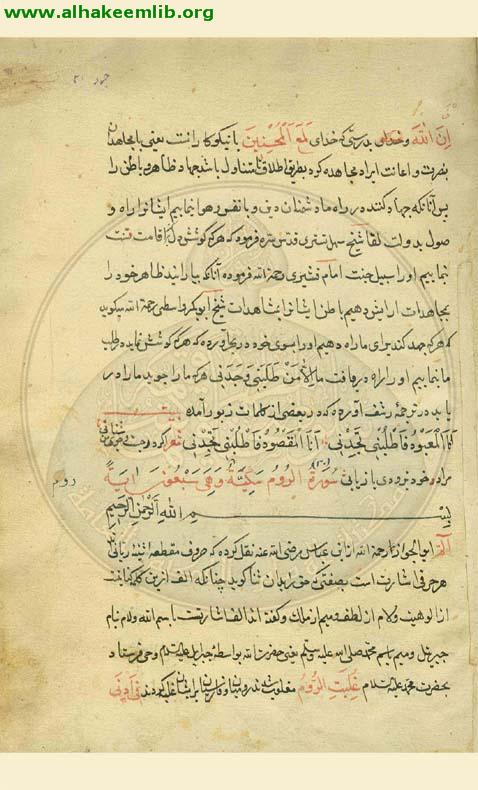 www.alhakeemlib.org
إن الله و خدای بدرستی که خدای لمع المحسنین با نیکوکارانست یعنی با مجاهدان
بنصرت و اعانت ایراد مجاهده کرد بطریق اطلاق تا متناول باشد جهاد ظاهر و باطن را
پس آنانکه جهاد کنند در راه ما دشمنان دین و با نفس و هوا بنماییم ایشانرا راه
وصول بدولت لقا شیخ سهل تستری قدس سره فرموده که هرکه کوشش در اقامت سنت
نماییم او را سبیل جنت امام قشیری رحمة الله فرموده آنانکه بیارایند ظاهر خود را
بمجاهدات آرایش دهیم باطن ایشانرا بمشاهدات شیخ ابوبکر واسطی رحمة الله میگوید
که هرکه جهد کند برای ما راه دهیم او را بسوی خود در آورده که هرکه کوشش نماید در طلب
ما بنماییم او را راه دریافت ما الا من طلبنی وجدنی هرکه ما را جوید ما را در
یابد در ترجمهٔ رشف آورده که در بعضی از کلمات زبور آمده بیت
انا المعبود فاطلبنی تجدنی انا المقصود فاطلبنی تجدنی شعر
مراد خود بزودی بازیابی سورة الروم مكية وهي ستون اية
دوم
بسم الله الرحمن الرحيم
الم ابوالجوزا رحمة الله از ابن عباس رضی الله عنه نقل کرده که حروف مقطعه
هر حرفی اشارت است بصفتی که حق را بدان ثنا گوید چنانکه الف ازین کلمه کنایتست
از الوهیت و لام از لطف و میم از ملک و گفته اند الف اشارتست باسم الله و لام بنام
جبرئیل و میم باسم محمد صلی الله علیه وسلم یعنی حضرت الله بواسطهٔ جبرئیل علیه السلام وحی فرستاد
بحضرت محمد علیه السلام غلبت الروم مغلوب شدند رومیان و فارسیان بر ایشان غلبه کردند في أدنى